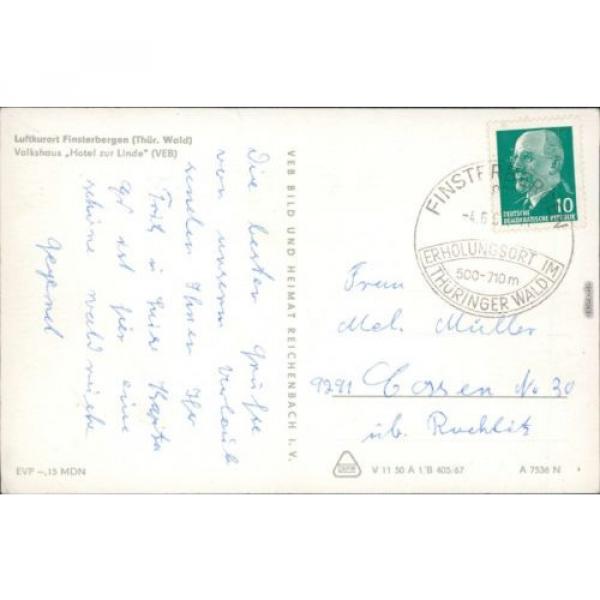 Luftkurort Finsterbergen (Thür. Wald)
Volkshaus „Hotel zur Linde" (VEB)
Die besten Grüße
von unserm Urlaub
senden Ihnen Ihr
Fritz u.
Es ist hier eine
schöne waldreiche
Gegend
VEB BILD UND HEIMAT REICHENBACH i. V.
EVP –,15 MDN
10
DEUTSCHE
DEMOKRATISCHE REPUBLIK
FINSTERBERGEN
-4.6.
ERHOLUNGSORT IM
500-710m
THÜRINGER WALD
Frau
Mel. Müller
9291 Cossen No 30
üb. Rochlitz
V 11 50 A 1/B 405/67
A 7536 N